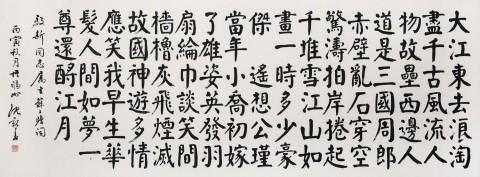 大江東去浪淘
盡千古風流人
物故壘西邊人
道是三國周郎
赤壁亂石穿空
驚濤拍岸捲起
千堆雪江山如
畫一時多少豪
傑遙想公瑾
當年小喬初嫁
了雄姿英發羽
扇綸巾談笑間
檣櫓灰飛煙滅
故國神遊多情
應笑我早生華
髮人間如夢一
尊還酹江月
新同志属
丙寅秋月